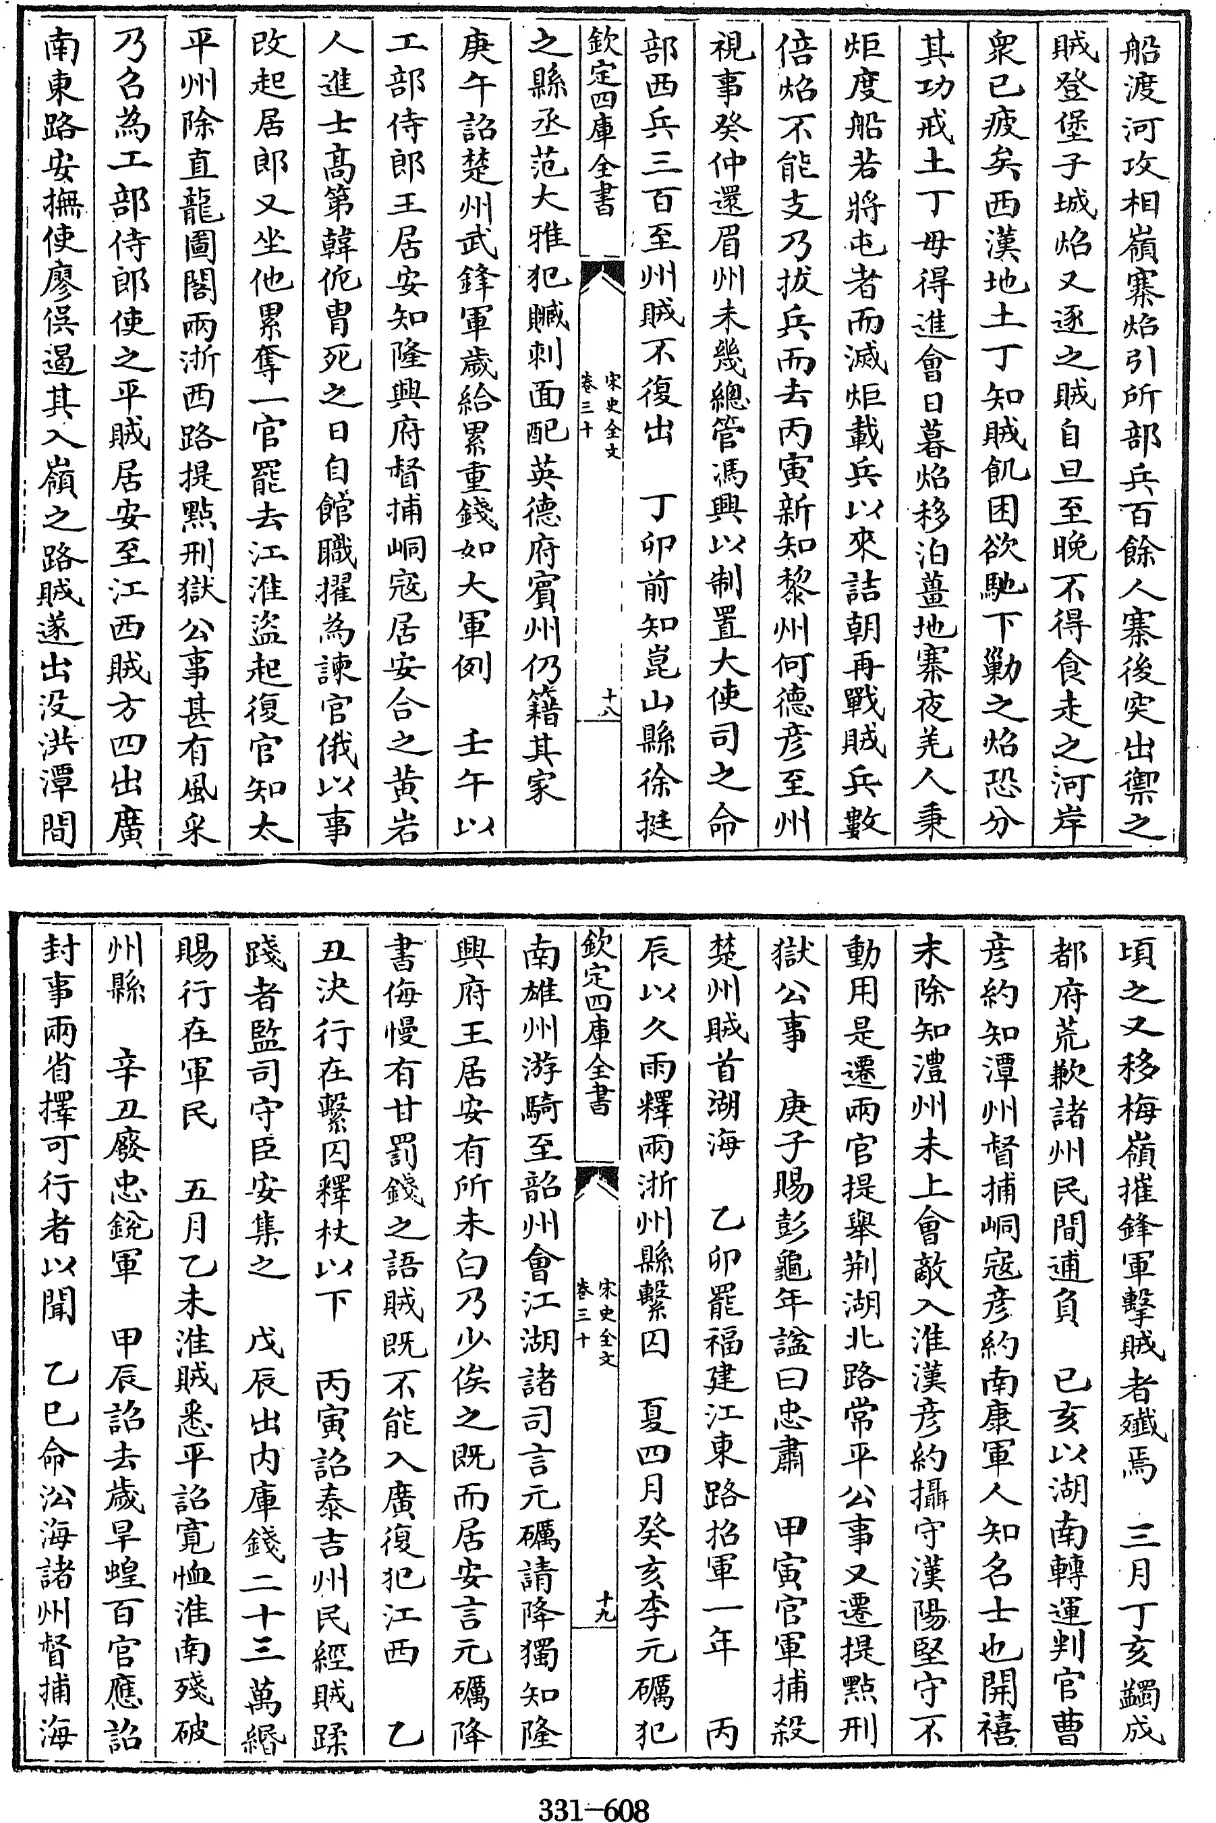 船渡河攻相嶺寨焰引所部兵百餘人寨後突出禦之
賊登堡子城焰又逐之賊自旦至晚不得食走之河岸
衆已疲矣西漢地土丁知賊飢困欲馳下勦之焰恐分
其功戒土丁毋得進會日暮焰移泊薑地寨夜羌人秉
炬度船若將屯者而滅炬載兵以來詰朝再戰賊兵數
倍焰不能支乃拔兵而去丙寅新知黎州何德彦至州
視事癸仲還眉州未幾總管馮興以制置大使司之命
部西兵三百至州賊不復出 丁卯前知崑山縣徐挺
欽定四庫全書 宋史全文 卷三十 十八
之縣丞范大雅犯贓刺面配英德府賓州仍籍其家
庚午詔楚州武鋒軍歲給累重錢如大軍例 壬午以
工部侍郎王居安知隆興府督捕峒寇居安合之黄岩
人進士髙第韓侂胄死之日自館職擢為諫官俄以事
改起居郎又坐他累奪一官罷去江淮盜起復官知太
平州除直龍圖閣兩浙西路提點刑獄公事甚有風采
乃召為工部侍郎使之平賊居安至江西賊方四出廣
南東路安撫使廖俣遏其入嶺之路賊遂出没洪潭間
頃之又移梅嶺摧鋒軍擊賊者殲焉 三月丁亥蠲成
都府荒歉諸州民間逋負 己亥以湖南轉運判官曹
彦約知潭州督捕峒寇彦約南康軍人知名士也開禧
末除知澧州未上會敵入淮漢彦約攝守漢陽堅守不
動用是遷兩官提舉荆湖北路常平公事又遷提點刑
獄公事 庚子賜彭龜年諡曰忠肅 甲寅官軍捕殺
楚州賊首湖海 乙卯罷福建江東路招軍一年 丙
辰以久雨釋兩浙州縣繫囚 夏四月癸亥李元礪犯
欽定四庫全書 宋史全文 卷三十 十九
南雄州游騎至韶州會江湖諸司言元礪請降獨知隆
興府王居安有所未白乃少俟之既而居安言元礪降
書侮慢有甘罰錢之語賊既不能入廣復犯江西 乙
丑決行在繫囚釋杖以下 丙寅詔泰吉州民經賊蹂
踐者監司守臣安集之 戊辰出内庫錢二十三萬緡
賜行在軍民 五月乙未淮賊悉平詔寛恤淮南殘破
州縣 辛丑廢忠銳軍 甲辰詔去歲旱蝗百官應詔
封事兩省擇可行者以聞 乙巳命沿海諸州督捕海
331-608